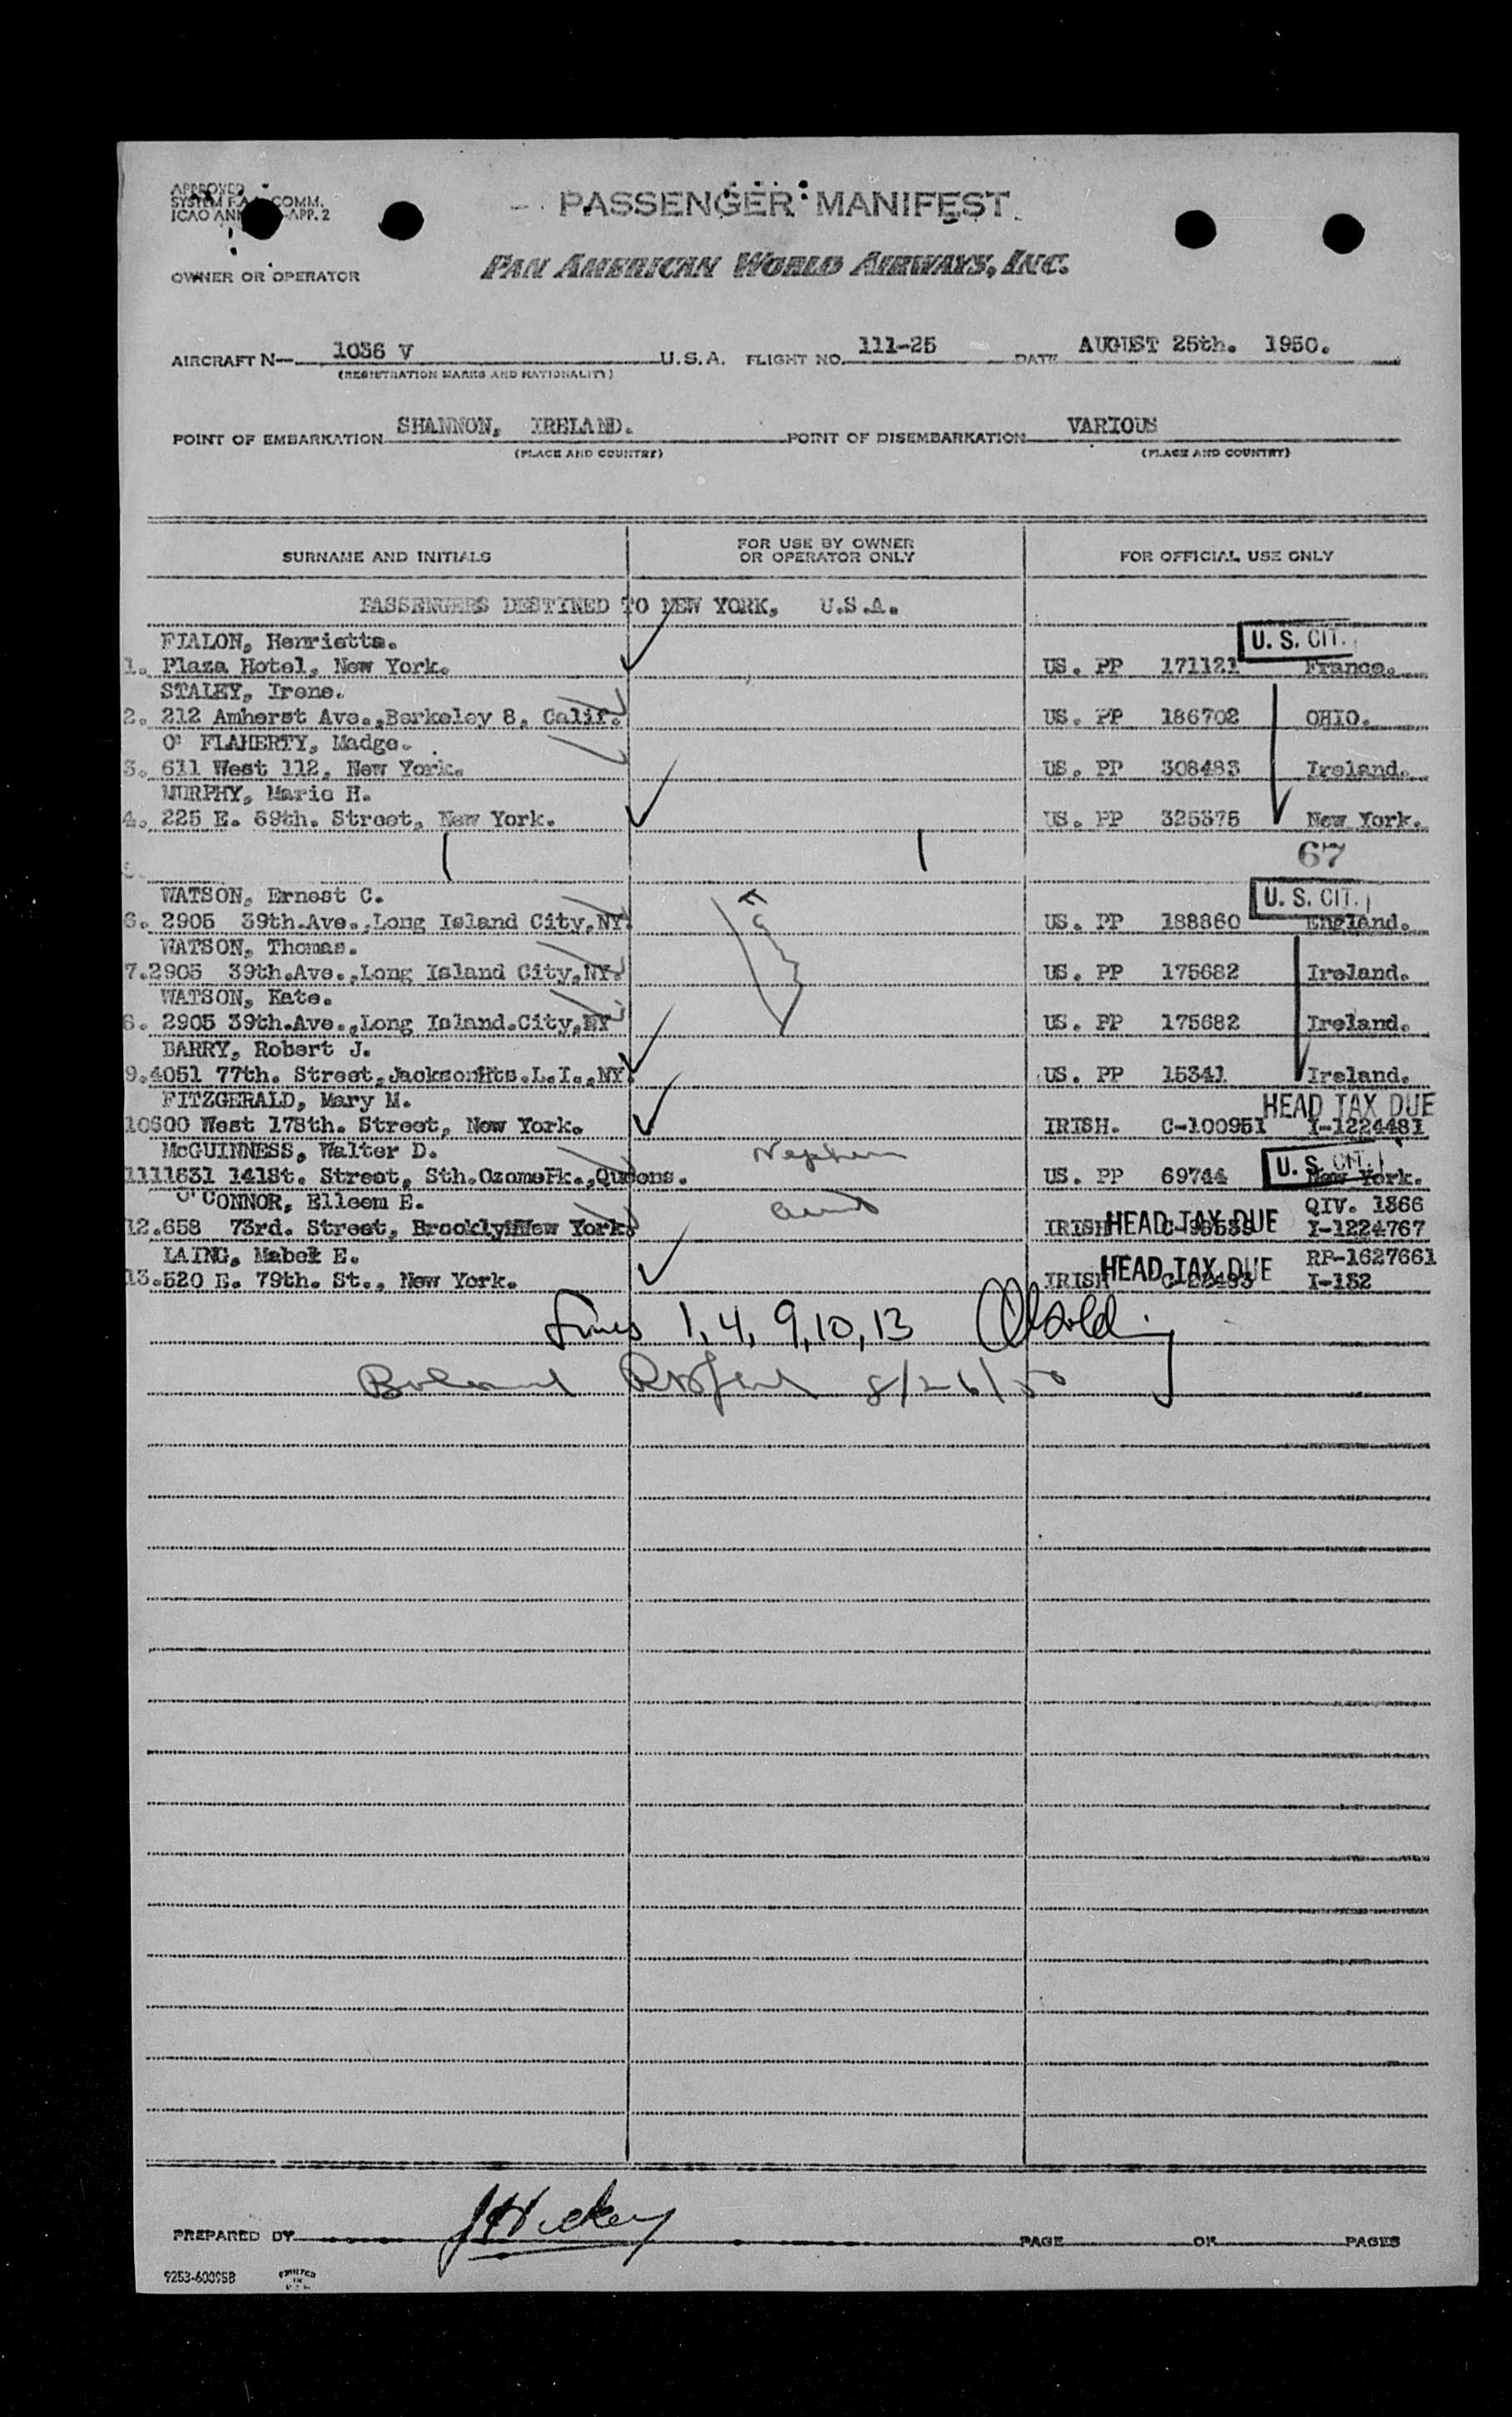 APPROVED
SYSTEM F.A.L. COMM.
ICAO ANN -APP. 2
PASSENGER MANIFEST
OWNER OR OPERATOR
PAN AMERICAN WORLD AIRWAYS, INC.
AIRCRAFT N— 1036 V U.S.A. FLIGHT NO. 111-25 DATE AUGUST 25th. 1950.
(REGISTRATION MARKS AND NATIONALITY)
POINT OF EMBARKATION SHANNON, IRELAND. POINT OF DISEMBARKATION VARIOUS
(PLACE AND COUNTRY) (PLACE AND COUNTRY)
SURNAME AND INITIALS FOR USE BY OWNER OR OPERATOR ONLY FOR OFFICIAL USE ONLY
PASSENGERS DESTINED TO NEW YORK, U.S.A.
FIALON, Henrietta. U. S. CIT.
1. Plaza Hotel, New York. US. PP 171121 France.
STALEY, Irene.
2. 212 Amherst Ave.,Berkeley 8, Calif. US. PP 186702 OHIO.
O' FLAHERTY, Madge.
3. 611 West 112, New York. US. PP 308483 Ireland.
MURPHY, Marie H.
4. 225 E. 69th. Street, New York. US. PP 325375 New York.
67
WATSON, Ernest C. U. S. CIT.
6. 2905 39th.Ave.,Long Island City,NY. US. PP 188860 England.
WATSON, Thomas.
7.2905 39th.Ave.,Long Island City,NY. US. PP 175682 Ireland.
WATSON, Kate.
8. 2905 39th.Ave.,Long Island.City,NY US. PP 175682 Ireland.
BARRY, Robert J.
9.4051 77th. Street,JacksonHts.L.I.,NY. US. PP 15341 Ireland.
FITZGERALD, Mary M. HEAD TAX DUE
10600 West 178th. Street, New York. IRISH. C-100951 I-1224481
McGUINNESS, Walter D. Nephew U. S. CIT.
1111631 141St. Street, Sth.OzonePk.,Queens. US. PP 69744 New York.
O'CONNOR, Elleem E. aunt QIV. 1366
12.658 73rd. Street, Brooklyn New York. IRISH HEAD TAX DUE I-1224767
LAING, Mabel E. RP-1627661
13.520 E. 79th. St., New York. IRISH HEAD TAX DUE I-152
Lines 1, 4, 9, 10, 13
8/26/50
PREPARED BY JHickey PAGE OF PAGES
9253-60095B PRINTED IN U.S.A.